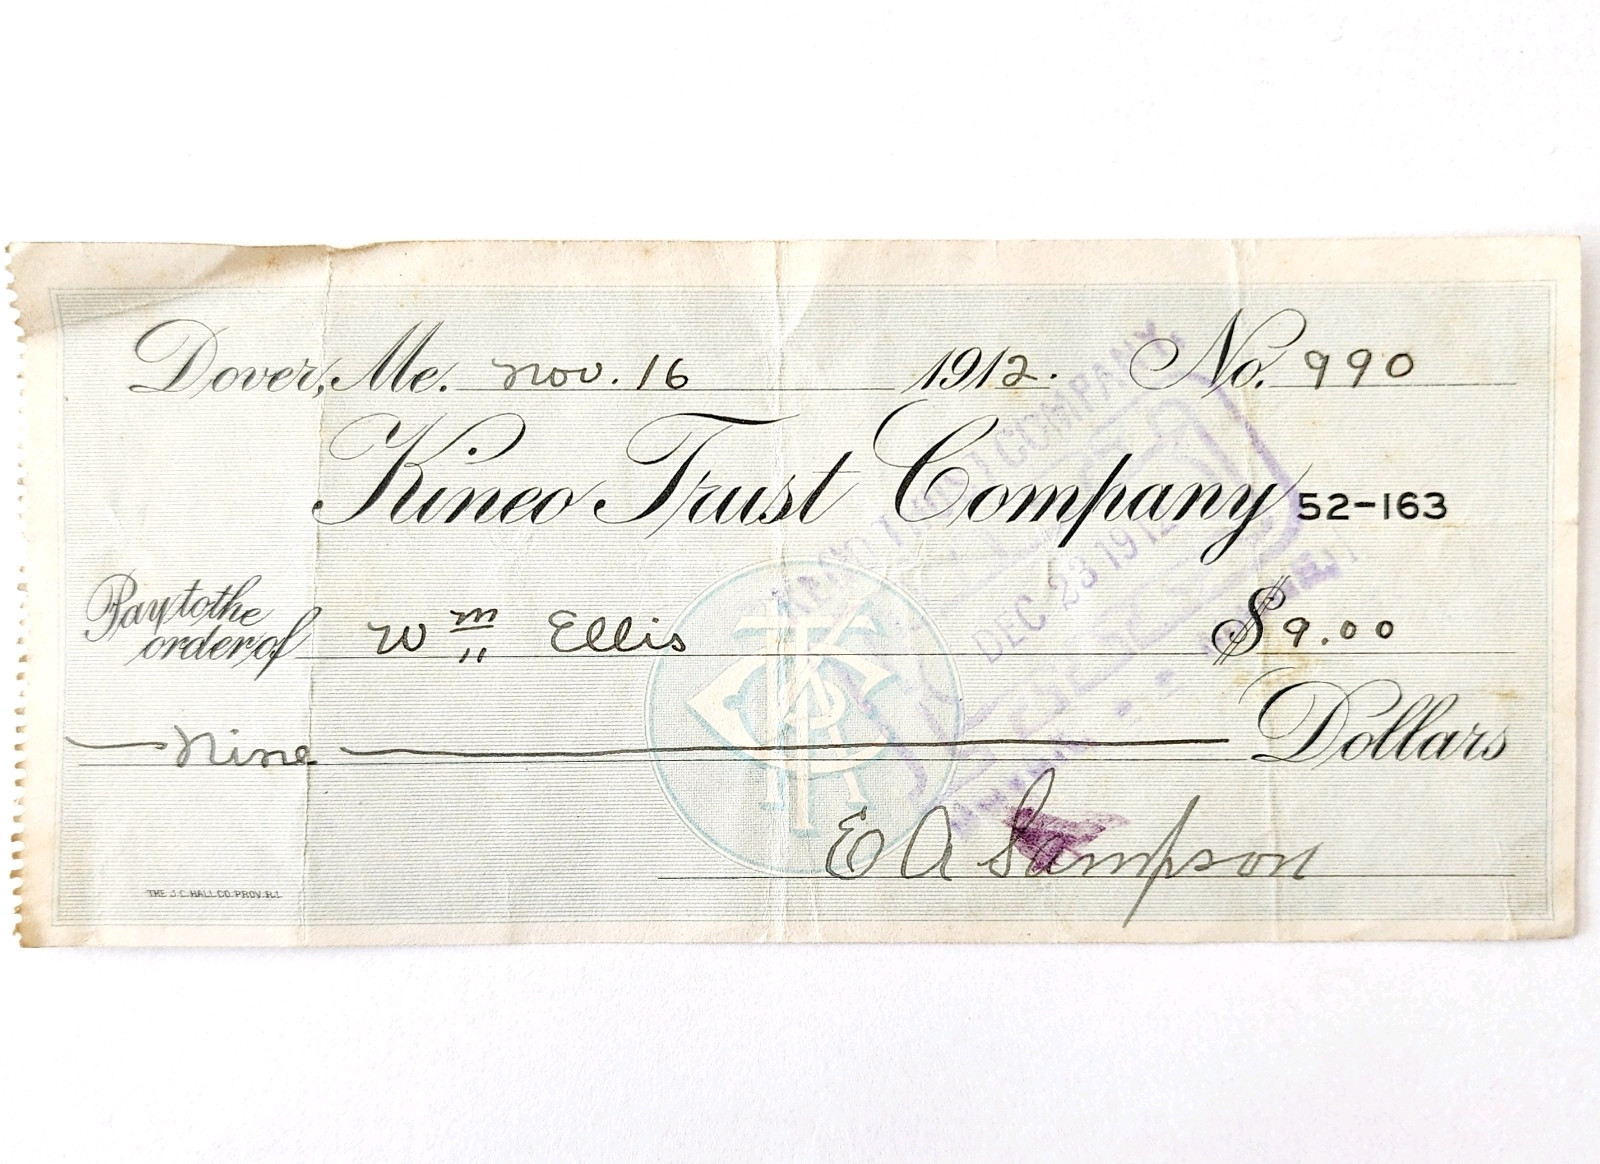 Dover, Me. Nov. 16 1912. No. 990
Kineo Trust Company 52-163
Pay to the
order of Wm Ellis $9.00
Nine Dollars
E A Sampson
THE J.C. HALL CO. PROV. R.I.
COMPANY,
DEC 23 1912